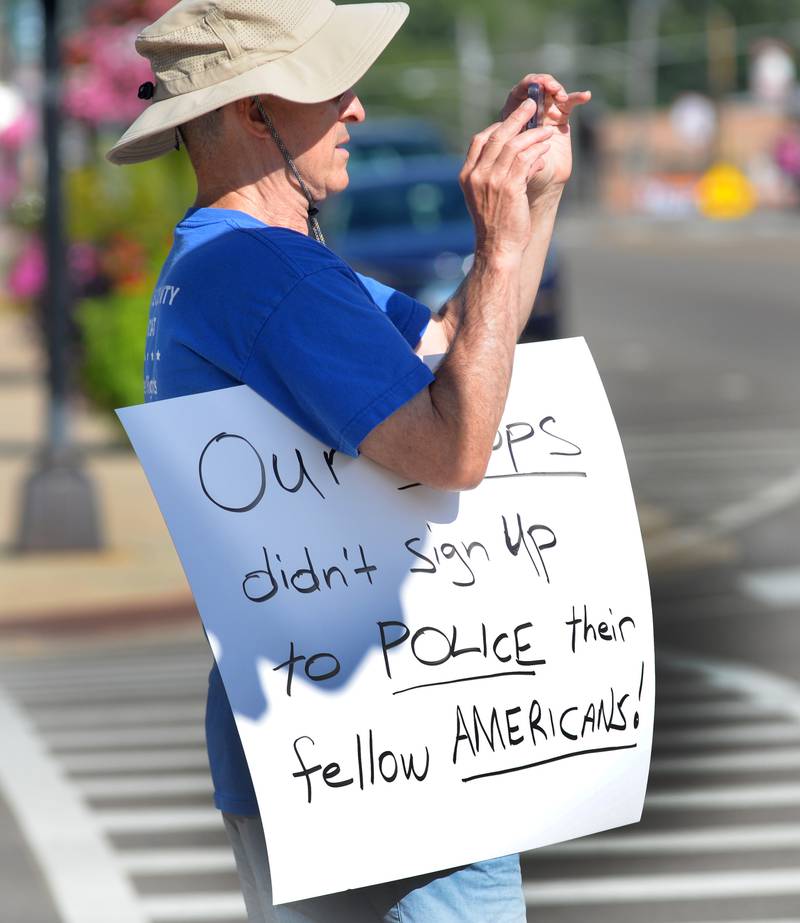 Our
didn't sign up
to POLICE their
fellow AMERICANS!